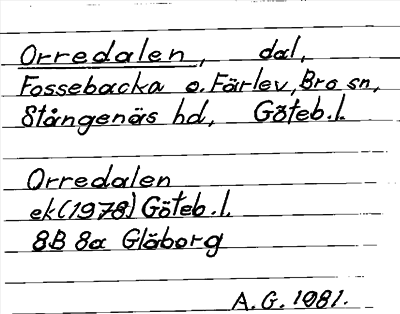 Orredalen, dal,
Fossebacka o. Färlev, Bro sn,
Stångenäs hd, Göteb. l.
Orredalen
ek (1978) Göteb. l.
8B 8a Gläborg
A. G. 1981.